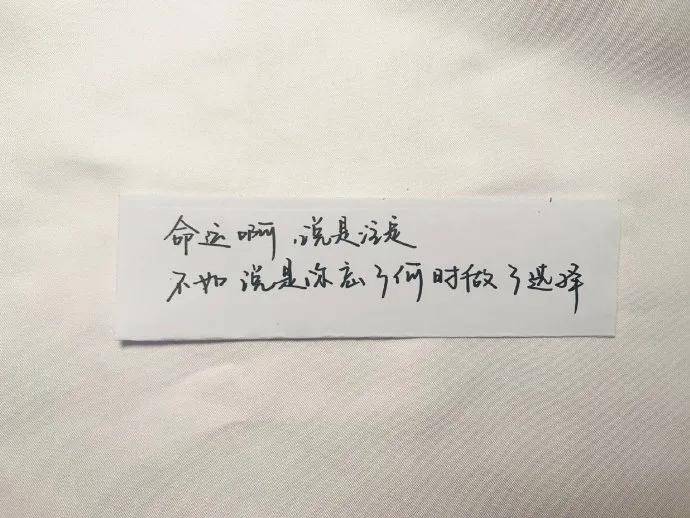 命运啊,说是注定
不如说是你忘了何时做了选择